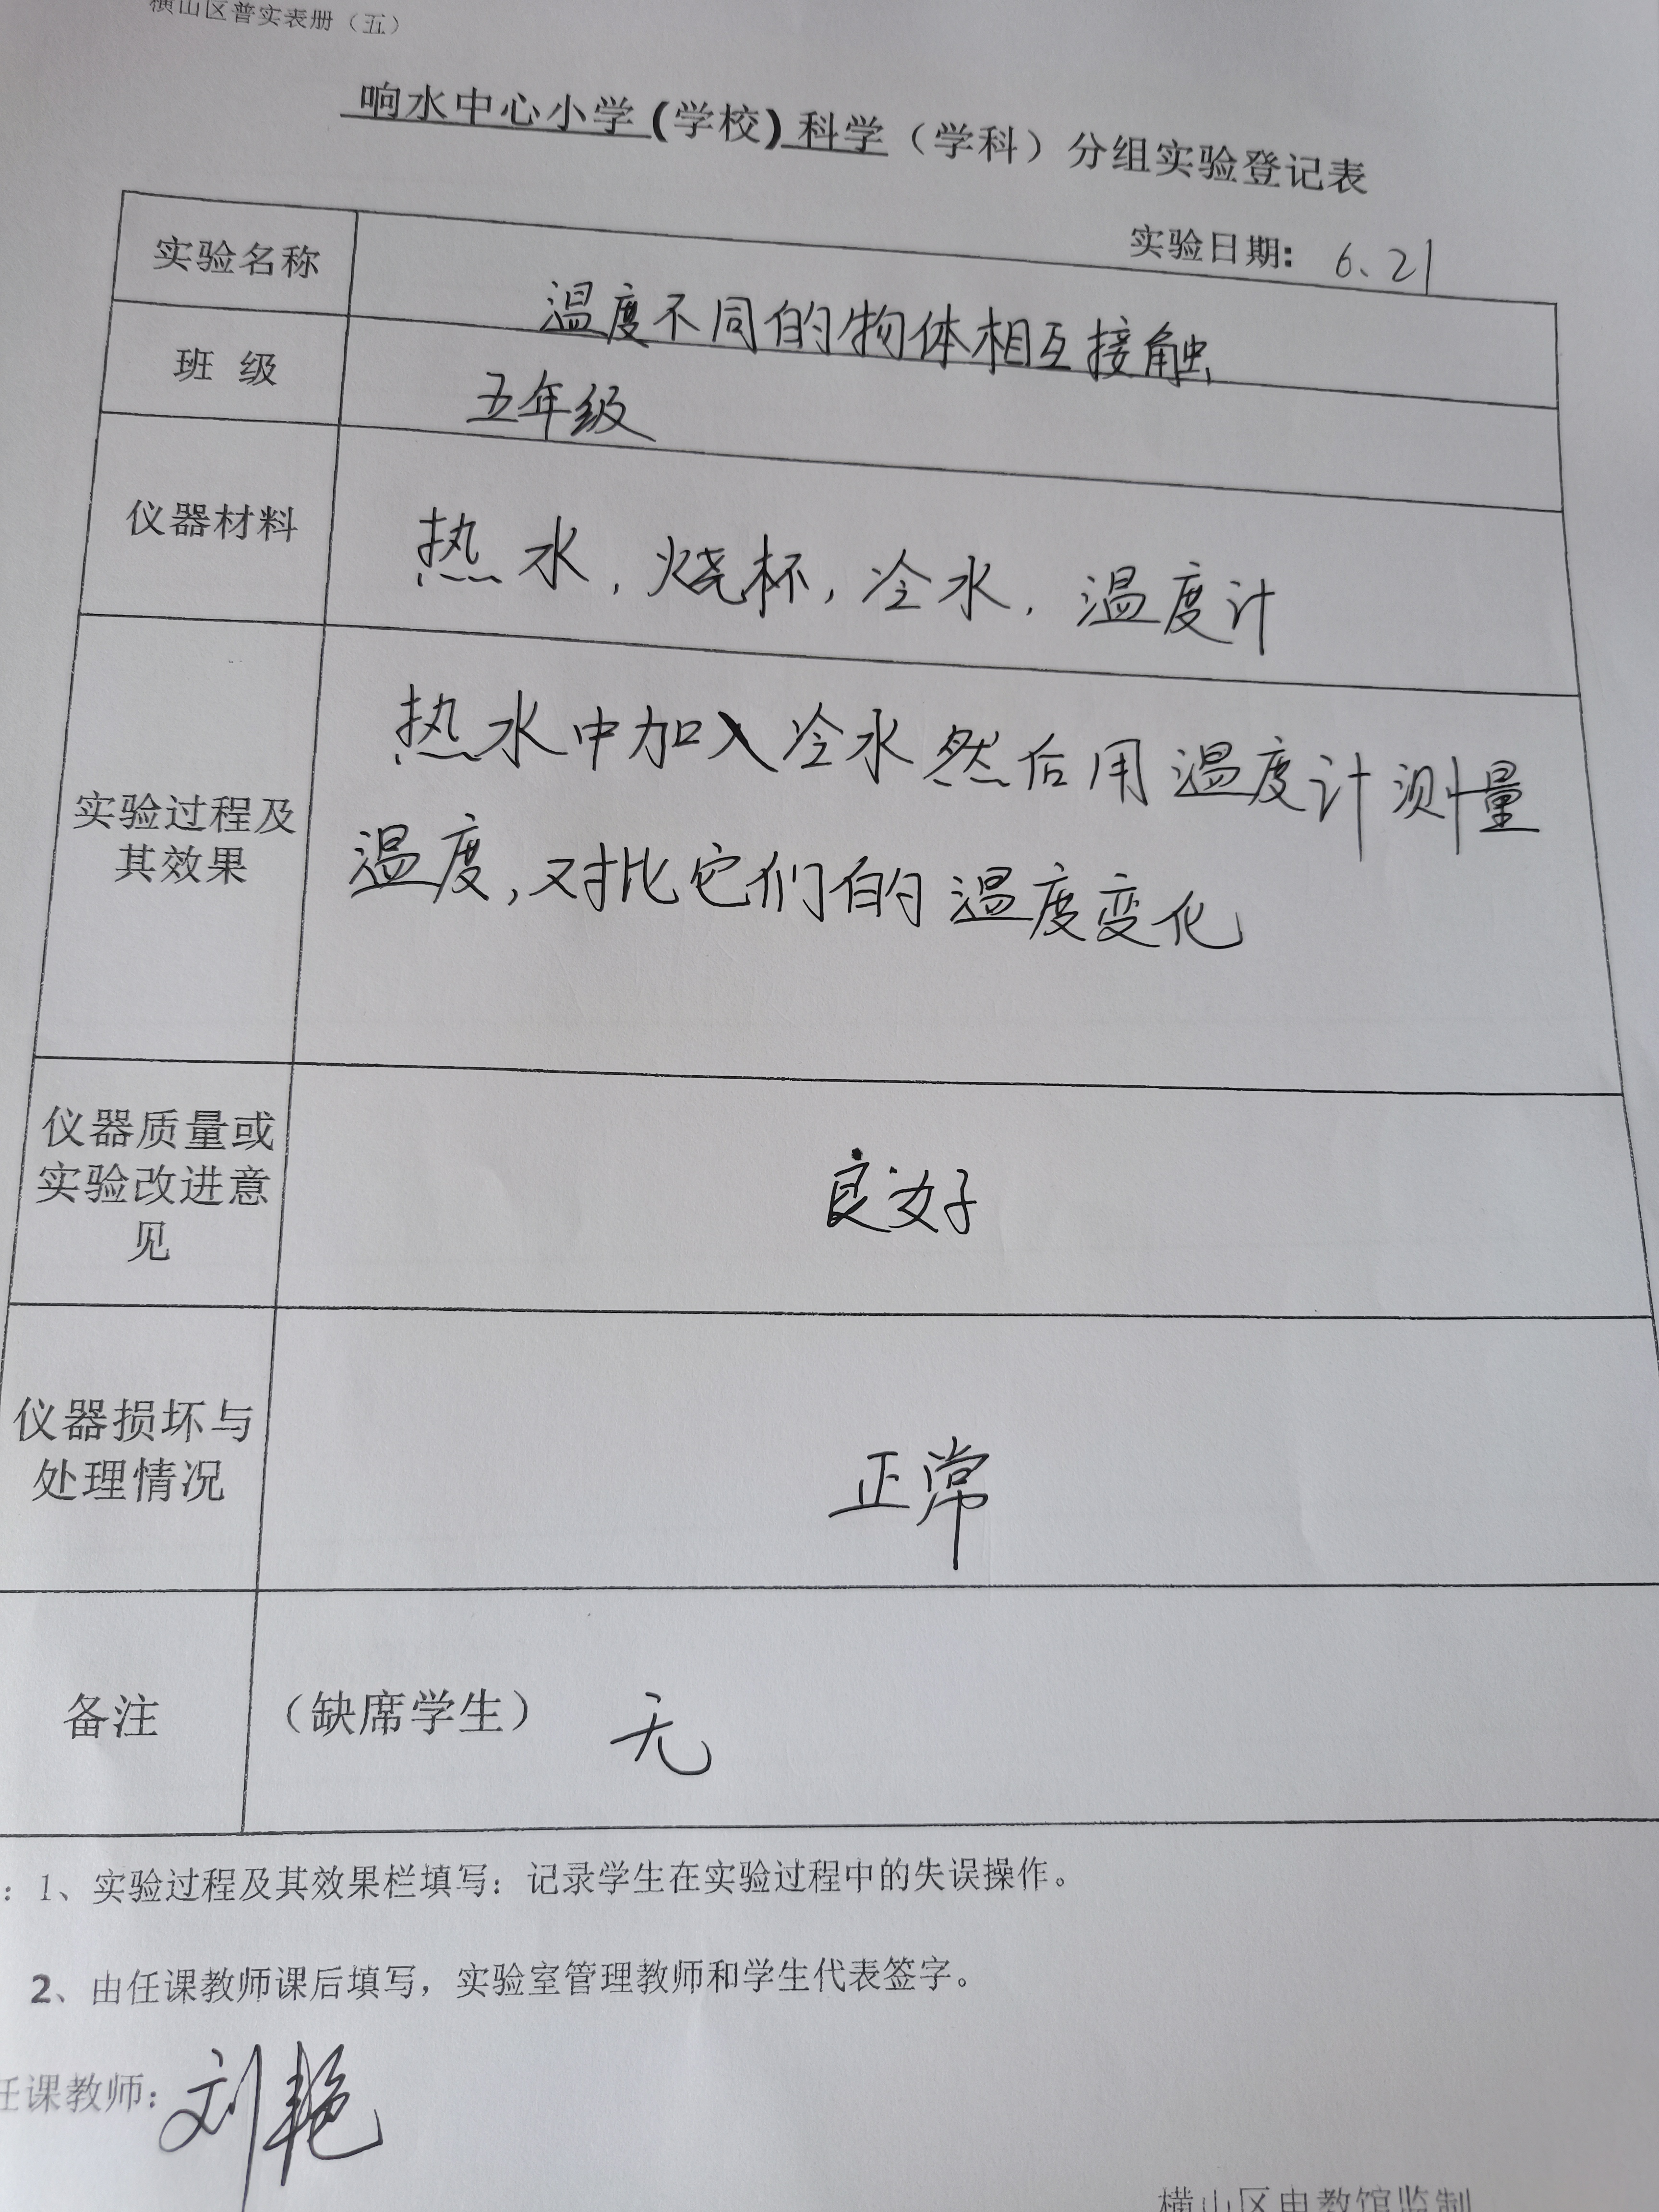 横山区普实表册（五）
响水中心小学(学校)科学（学科）分组实验登记表
实验日期: 6、21
实验名称
温度不同的物体相互接触
班 级
五年级
仪器材料
热水，烧杯，冷水，温度计
实验过程及
其效果
热水中加入冷水然后用温度计测量
温度，对比它们的温度变化
仪器质量或
实验改进意
见
良好
仪器损坏与
处理情况
正常
备注
（缺席学生） 无
：1、实验过程及其效果栏填写：记录学生在实验过程中的失误操作。
2、由任课教师课后填写，实验室管理教师和学生代表签字。
任课教师：刘艳
横山区电教馆监制